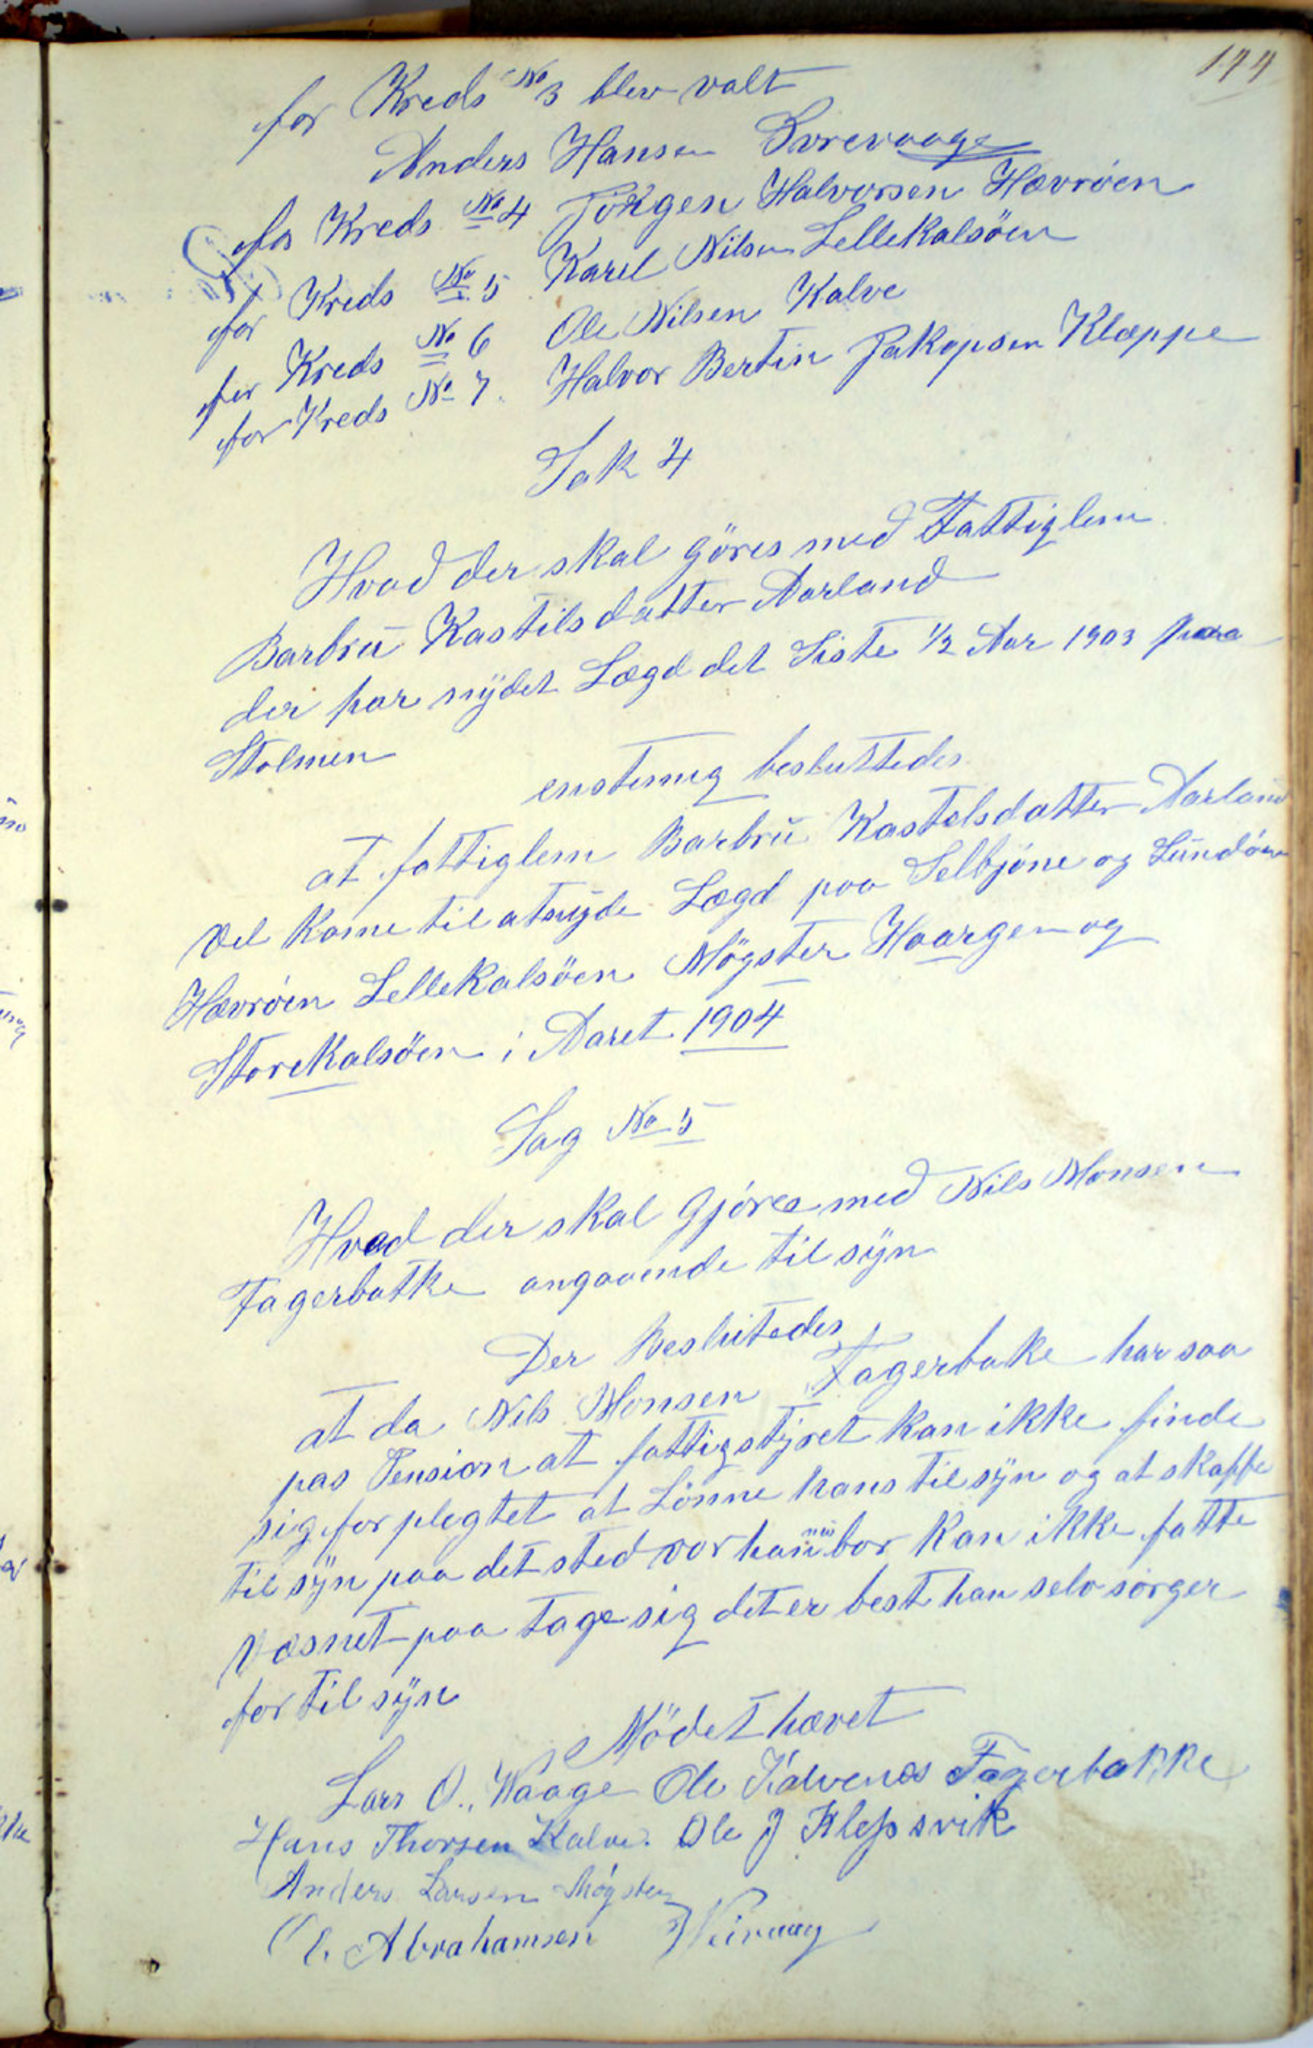 177
for Kreds No 3 blev valt
Anders Hansen Svrevaage
for Kreds No 4 Jörgen Halvorsen Hævröen
for Kreds No 5 Karel Nilsen Lellekalsöen
for Kreds No 6 Ole Nilsen Kalve
for Kreds No 7. Halvor Bertin Jakopsen Klæppe
Sak 4
Hvad der skal göres med Fattiglem
Barbru Kastilsdatter Aarland
der har nydet Lægd det Siste 1/2 Aar 1903 paa
Stolmen
enstemig besluttedes
at fattiglem Barbru Kastelsdatter Aarland
vel kome til at nyde Lægd paa Selbjöne og Lundöen
Hævröen Lellekalsöen Mögster Haargen og
Storekalsöen i Aaret 1904
Sag No 5
Hvad der skal Gjöres med Nils Monsen
Fagerbakke angaaende tilsyn
Der Beslutedes
at da Nils Monsen Fagerbake har saa
pas Pension at fattigstyret kan ikke finde
sig forplegtet at Lönne hans tilsyn og at skaffe
tilsyn paa det sted vor han bor kan ikke fatte
væsnet paa tage sig det er best han selv sörger
for tilsyn
Mödet hævet
Lars O. Waage Ole Kalvenes Fagerbakke
Hans Thorsen Kalve. Ole J Klepsvik
Anders Larsen Møgster
E. Abrahamsen